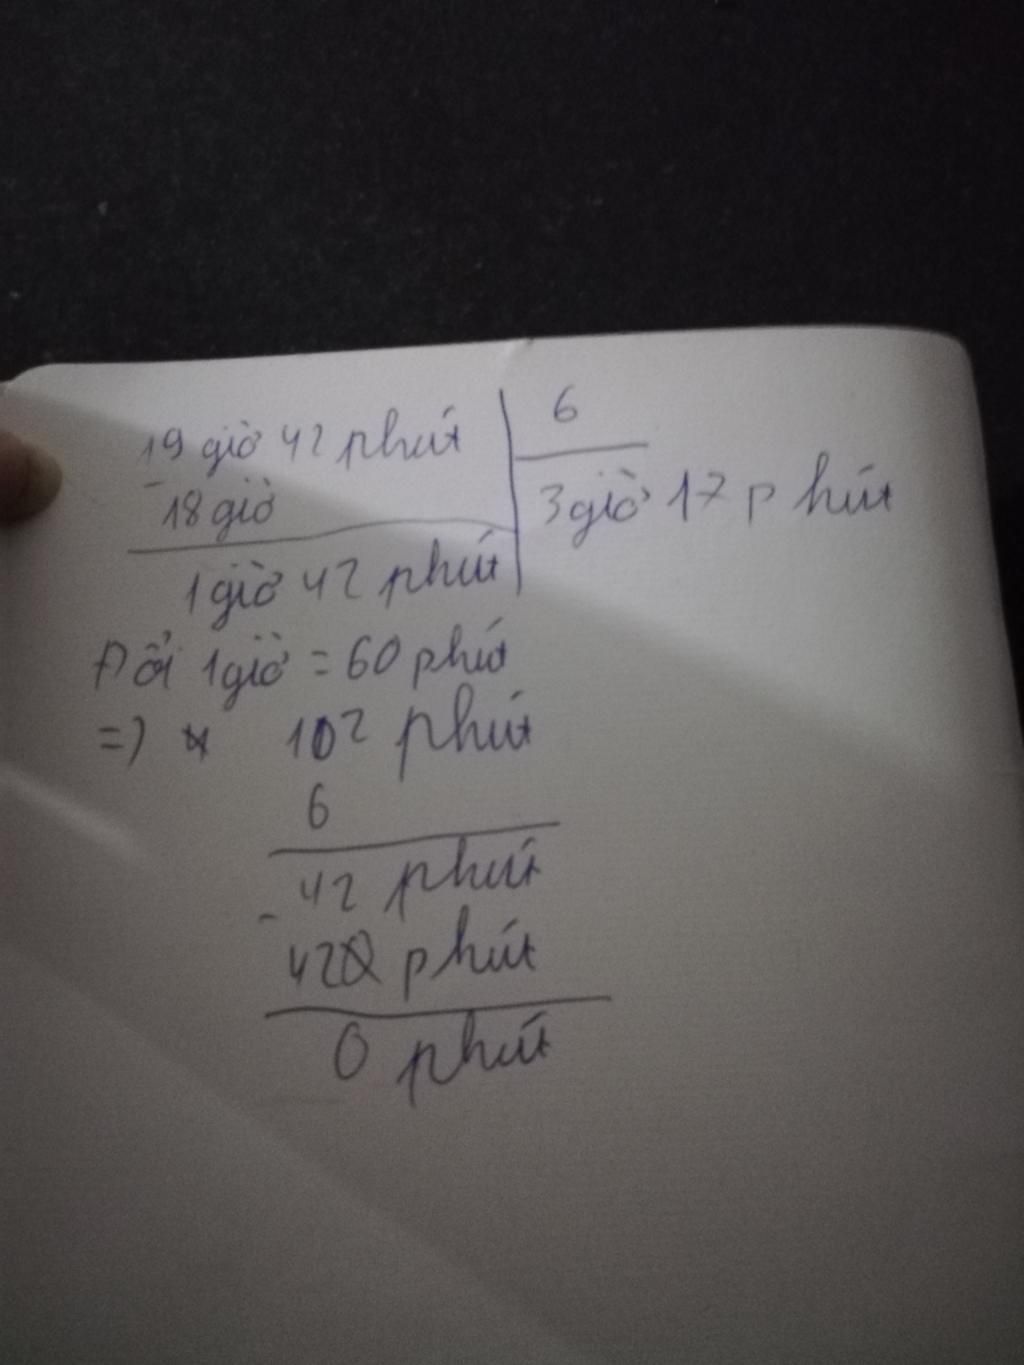 19 giờ 42 phút 6
- 18 giờ 3 giờ 17 phút
1 giờ 42 phút
Đổi 1 giờ = 60 phút
=> 102 phút
6
42 phút
- 420 phút
0 phút